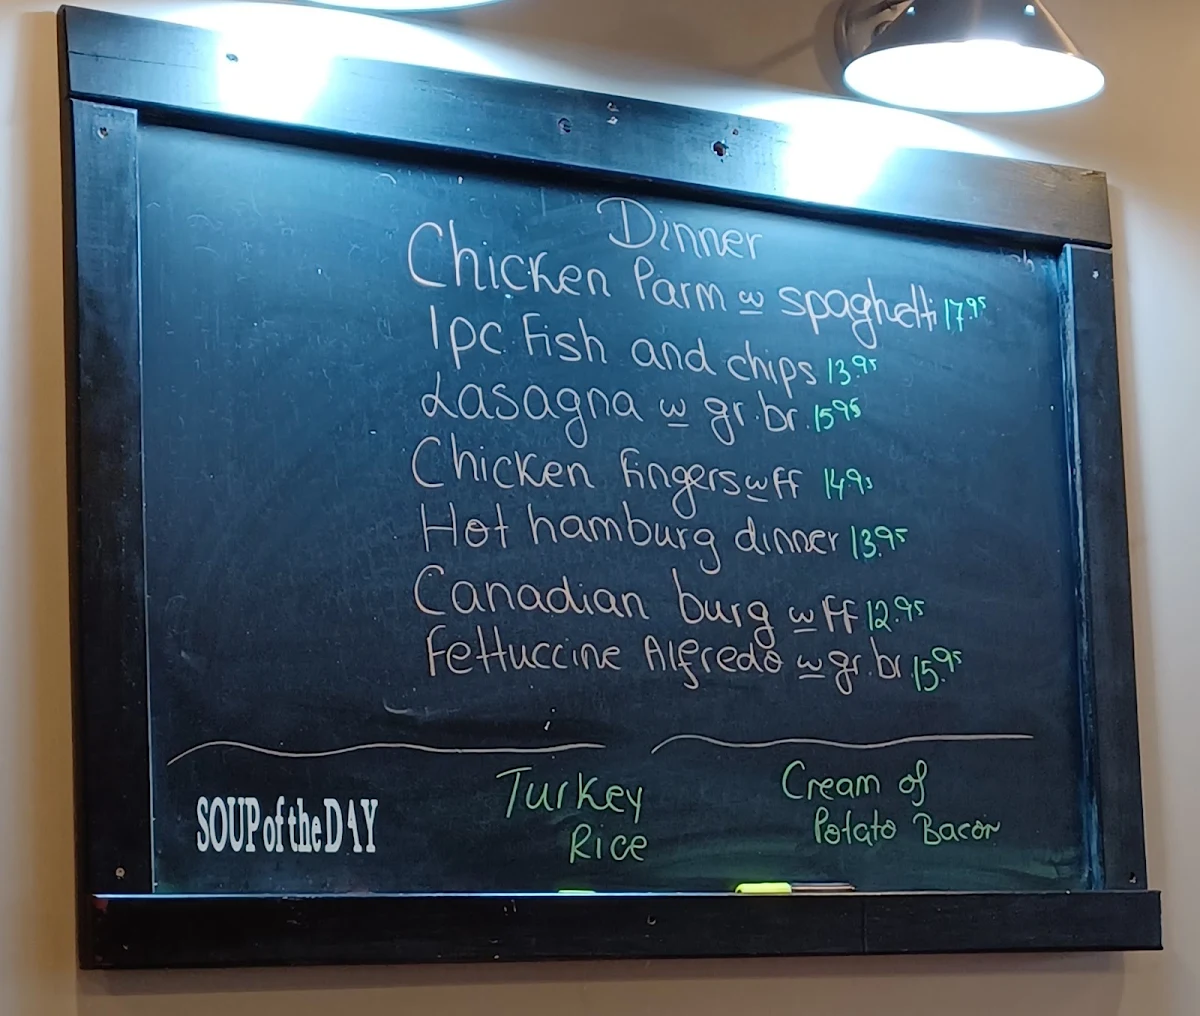 Dinner
Chicken Parm w spaghetti 17.95
1pc Fish and chips 13.95
Lasagna w gr. br. 15.95
Chicken Fingers w FF 14.95
Hot hamburg dinner 13.95
Canadian burg w FF 12.95
Fettuccine Alfredo w gr. br. 15.95
SOUP of the DAY
Turkey
Rice
Cream of
Potato Bacon